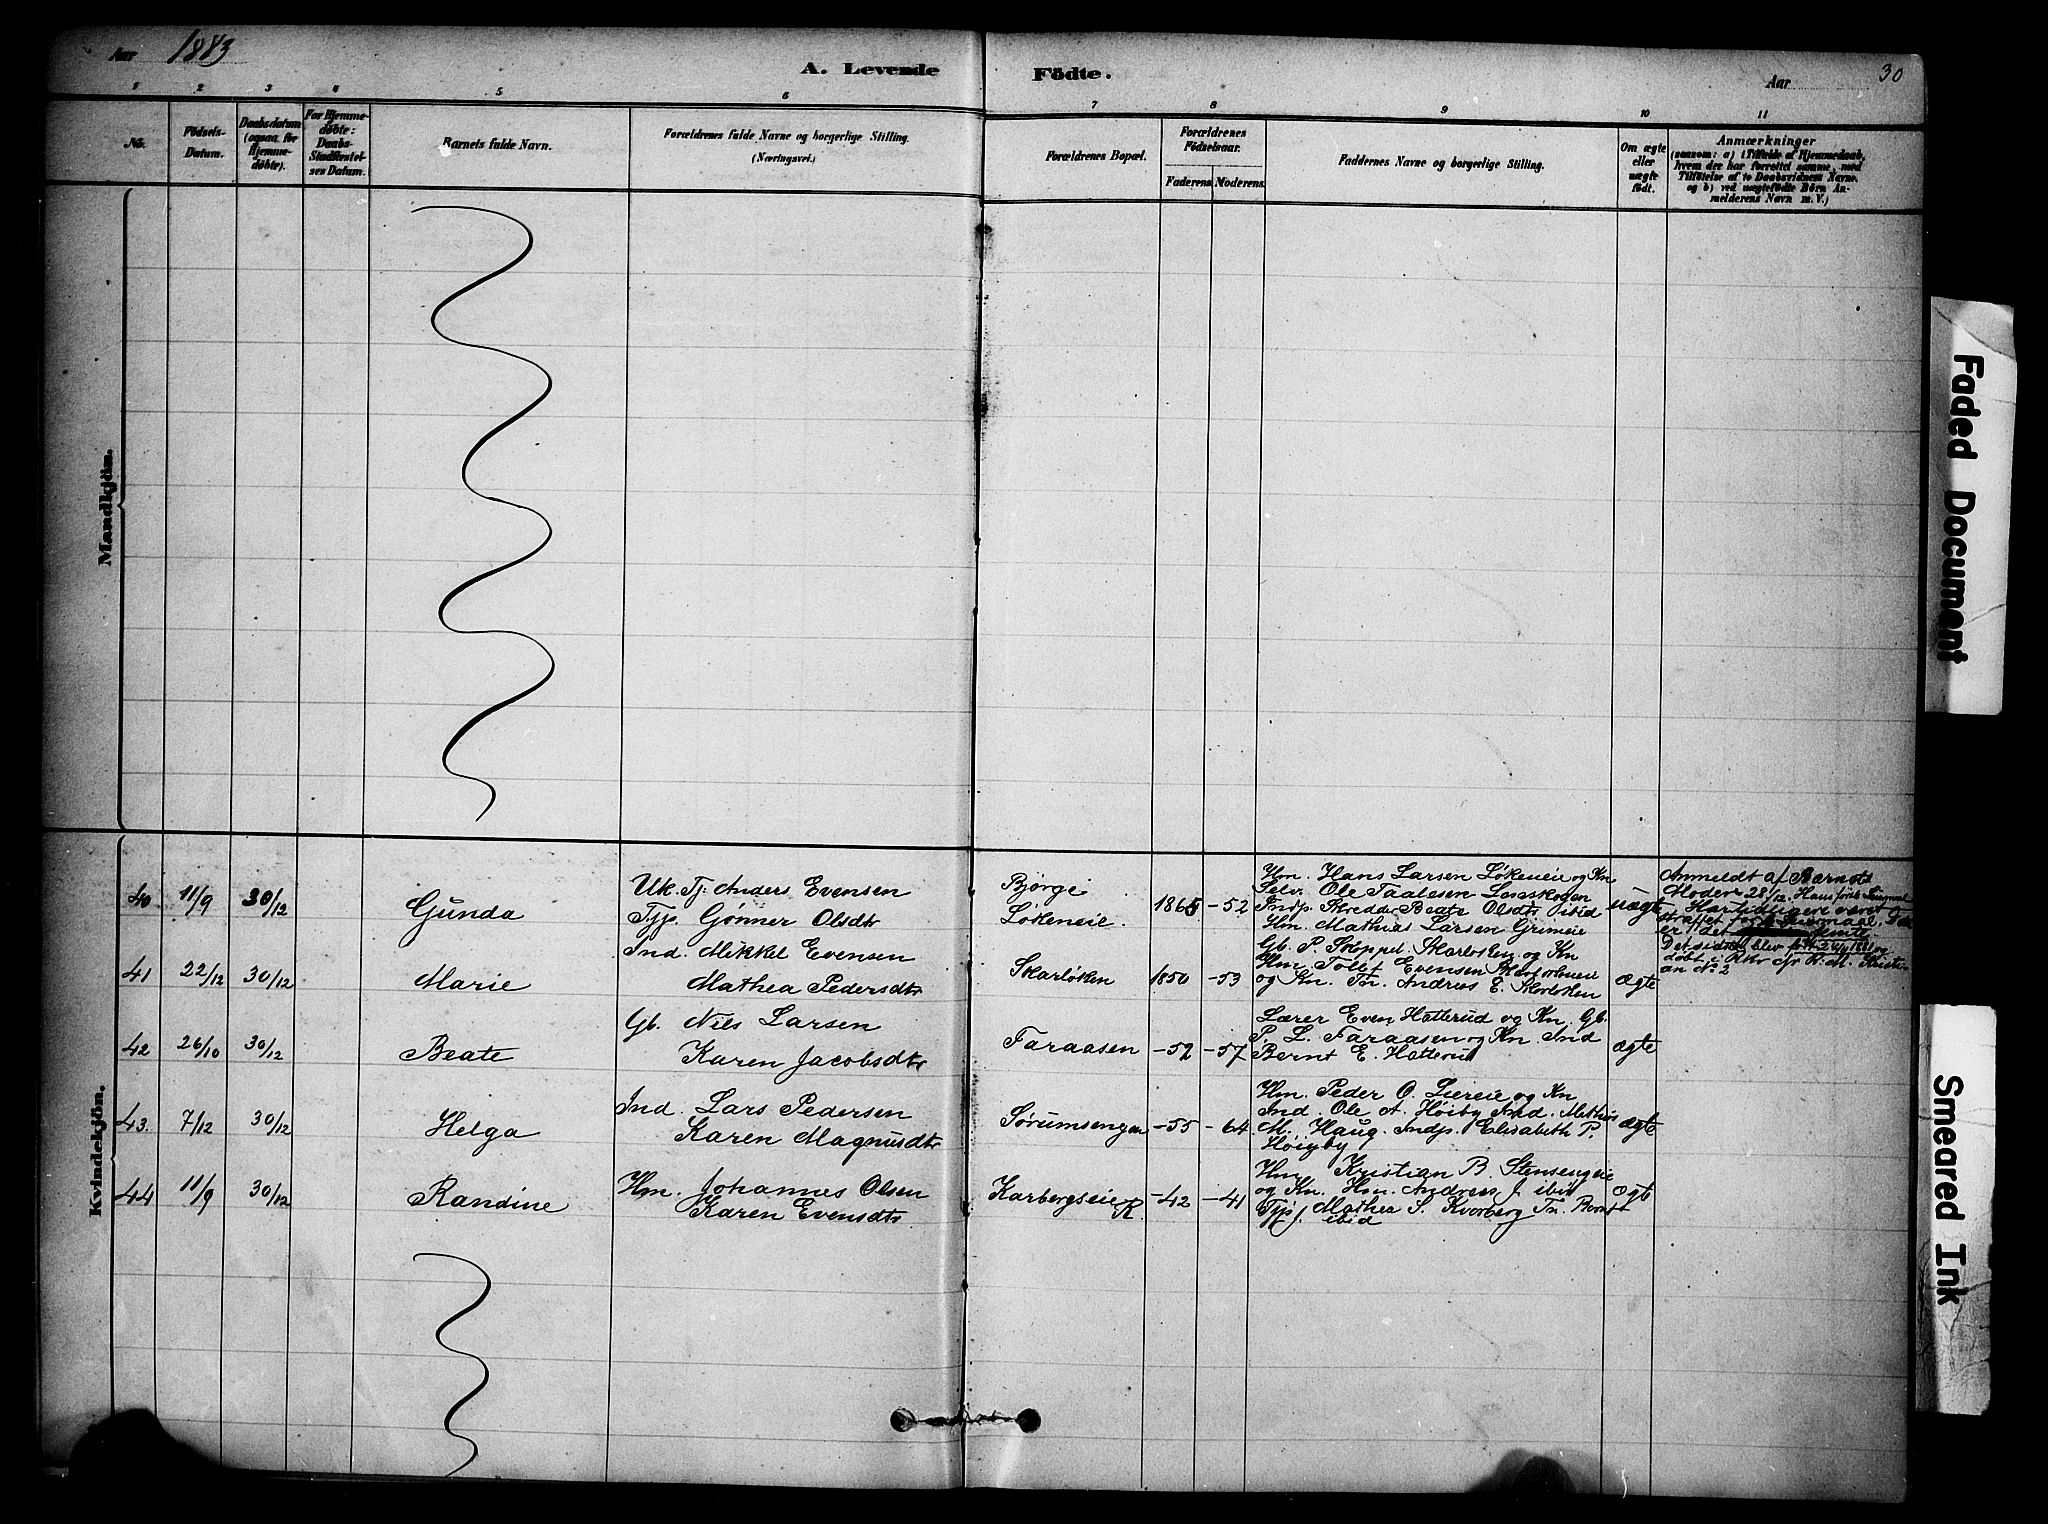 Aar 1883
A. Levende Födte.
Aar 30
1 2 3 4 5 6 7 8 9 10 11
No.
Födsels-
Datum.
Daabsdatum
(ogsaa for
Hjemme-
døbte).
For Hjemme-
døbte:
Daabs-
Stadfæstel-
ses Datum.
Barnets fulde Navn.
Forældrenes fulde Navne og borgerlige Stilling.
(Næringsvei.)
Forældrenes Bopæl.
Forældrenes
Födselsaar.
Faderens Moderens
Faddernes Navne og borgerlige Stilling.
Om ægte
eller
uægte
födt.
Anmærkninger
(saasom: a) i Tilfælde af Hjemmedaab,
hvem der har forrettet samme, med
Tilföielse af to Daabsvidners Navne,
og b) ved uægtefödte Börn An-
melderens Navn m. V.)
Mandkjön.
Kvindekjön.
40 11/9 30/12 Gunda
Uk. Tj. Anders Evensen
Tjp. Gønner Olsdtr
Bjørge
Løkeneie.
1865 -52
Hm. Hans Larsen Løkeneie og Kn
Selv. Ole Paalesen
Indp. Beate Olsdtr ibid
Hm. Mathias Larsen Grimeie
uægte
Anmeldt af Barnets
Moder 28/12.
41 22/12 30/12 Marie
Ind. Mikkel Evensen
Mathea Pedersdtr
Skarløken
1850 -53
Gb. P. Skarløken og Kn
Hm Evensen
og Kn. Tn. Andreas E. Skarløken
ægte
42 26/10 30/12 Beate
Gb. Niels Larsen
Karen Jacobsdtr
Faraasen
-52 -57
Lærer Even Hatterud og Kn. Gb.
P. L. Faraasen og Kn. Ind
Bernt E. Hatterud
ægte
43. 7/12 30/12 Helga
Ind. Lars Pedersen
Karen Magnusdtr
Sørumsengen
-55 -64
Hm. Peder O. og Kn
Ind. Ole A. Høiby Ind. Mathias
M. Haug. Indp. Elisabeth P.
Høiby
ægte
44 11/9 30/12 Randine
Hm. Johannes Olsen
Karen Evensdtr
Karbergseie
K.
-42 -41
Hm Kristian B. Stensengeie
og Kn. Hm. Andreas J. ibid
Tjp. Mathea S. Kvarberg Tn. Bernt
J. ibid
ægte
Faded Document
Smeared Ink